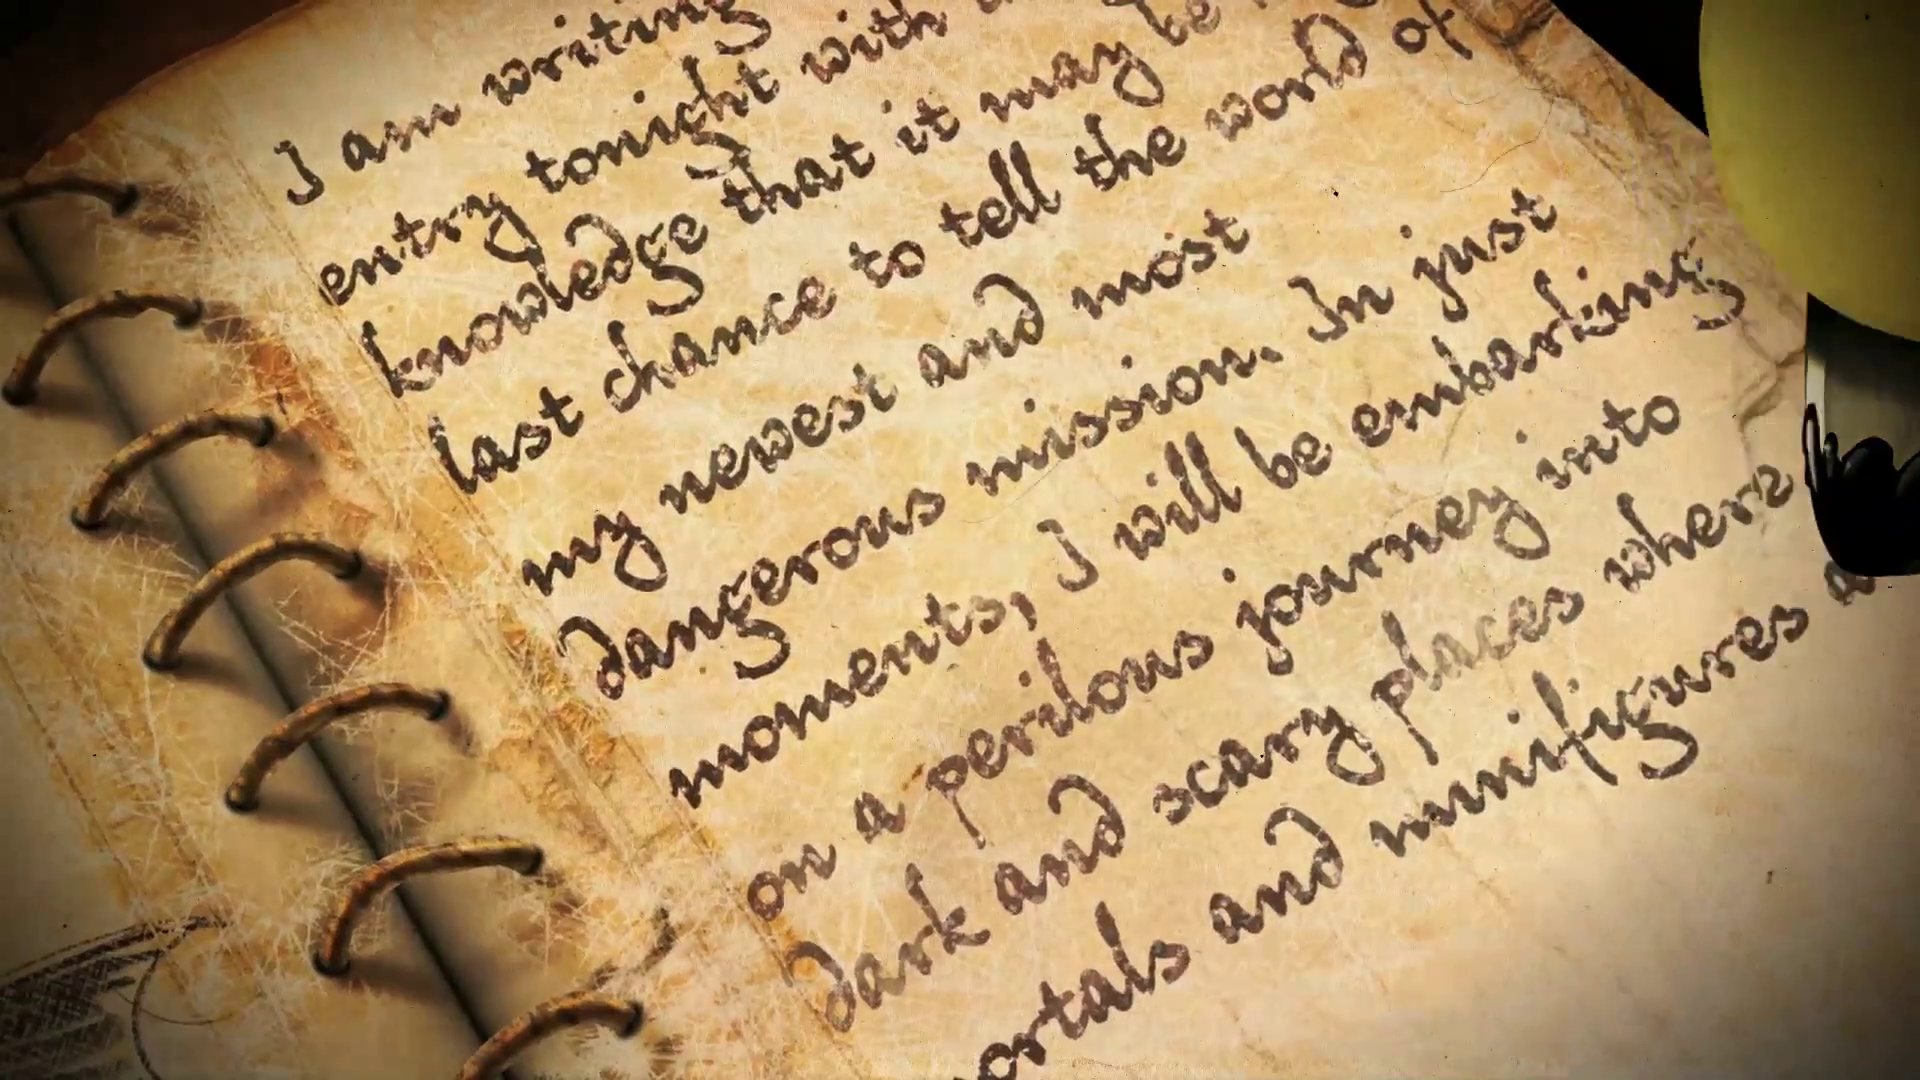 I am writing
entry tonight with
knowledge that it may be
last chance to tell the world of
my newest and most
dangerous mission. In just
moments, I will be embarking
on a perilous journey into
dark and scary places where
and minifigures